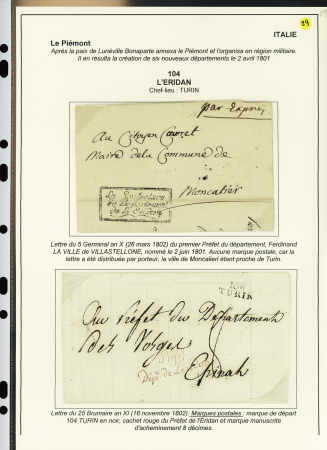 29
ITALIE
Le Piémont
Après la paix de Lunéville Bonaparte annexa le Piémont et l'organisa en région militaire.
Il en résulta la création de six nouveaux départements le 2 avril 1801
104
L'ERIDAN
Chef-lieu : TURIN
par Exprès
Au Citoyen
Maire de la Commune de
Moncalier
La Préfecture
du Département
de l'Eridan
Lettre du 5 Germinal an X (26 mars 1802) du premier Préfet du département, Ferdinand
LA VILLE de VILLASTELLONE, nommé le 2 juin 1801. Aucune marque postale, car la
lettre a été distribuée par porteur, la ville de Moncalieri étant proche de Turin.
104
TURIN
Au Préfet du Département
des Vosges
Epinal
Lettre du 25 Brumaire an XI (16 novembre 1802). Marques postales : marque de départ
104 TURIN en noir, cachet rouge du Préfet de l'Eridan et marque manuscrite
d'acheminement 8 décimes.